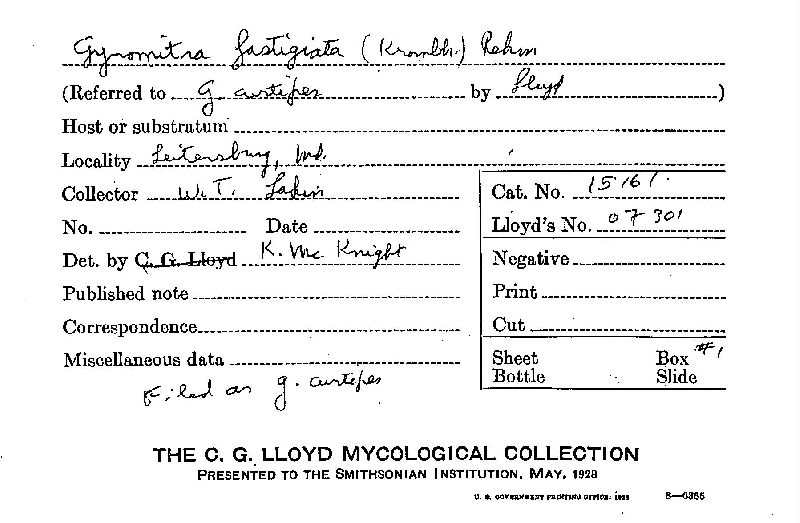 Gyromitra fastigiata (Krombh.) Rehm
(Referred to G curtipes by Lloyd)
Host or substratum
Locality Leitersburg, Md.
Collector W. T. Lakin
Cat. No. 15161.
No. Date
Lloyd's No. 07301
Det. by C. G. Lloyd K. Mc Knight
Negative
Published note
Print
Correspondence
Cut
Miscellaneous data
Sheet Box #1
Bottle Slide
Filed as G. curtipes
THE C. G. LLOYD MYCOLOGICAL COLLECTION
PRESENTED TO THE SMITHSONIAN INSTITUTION, MAY, 1928
U. S. GOVERNMENT PRINTING OFFICE: 1928 8—6366